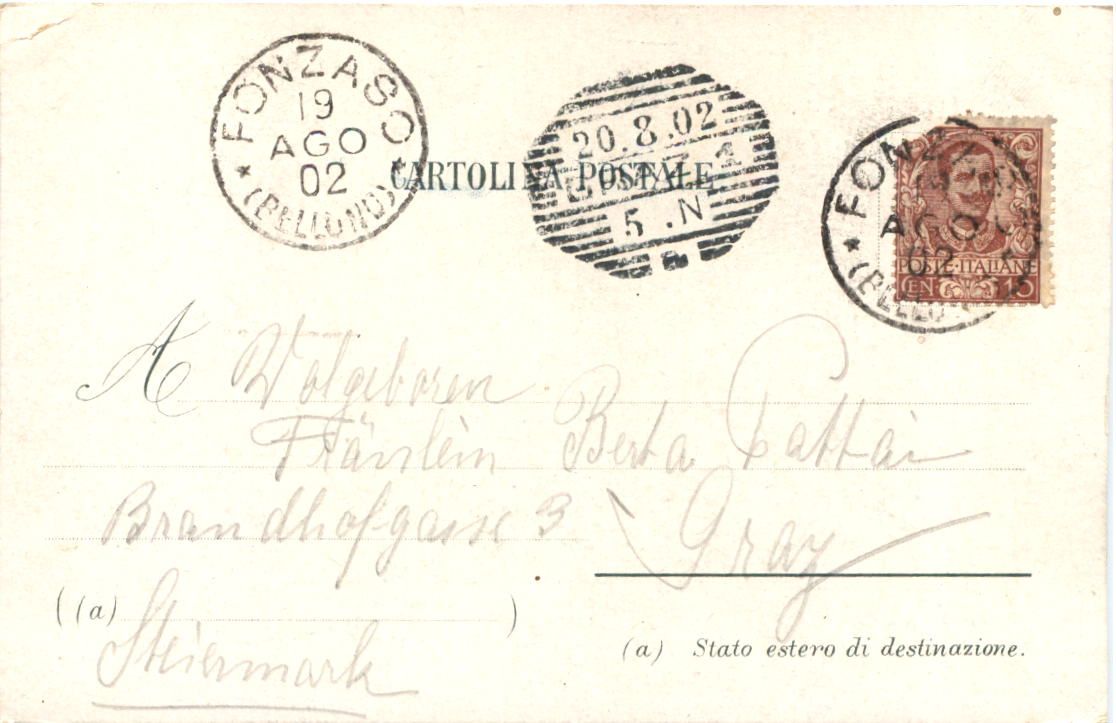 FONZASO
19
AGO
02
(BELLUNO)
20.8.02
1
5.N
CARTOLINA POSTALE
FONZ
AGO
02
(BELLU
POSTE·ITALIANE
CEN 10
A Wolgeboren
Fräulein Berta Pattai
Brandhofgasse 3
Graz
(a)
Steiermark
(a) Stato estero di destinazione.